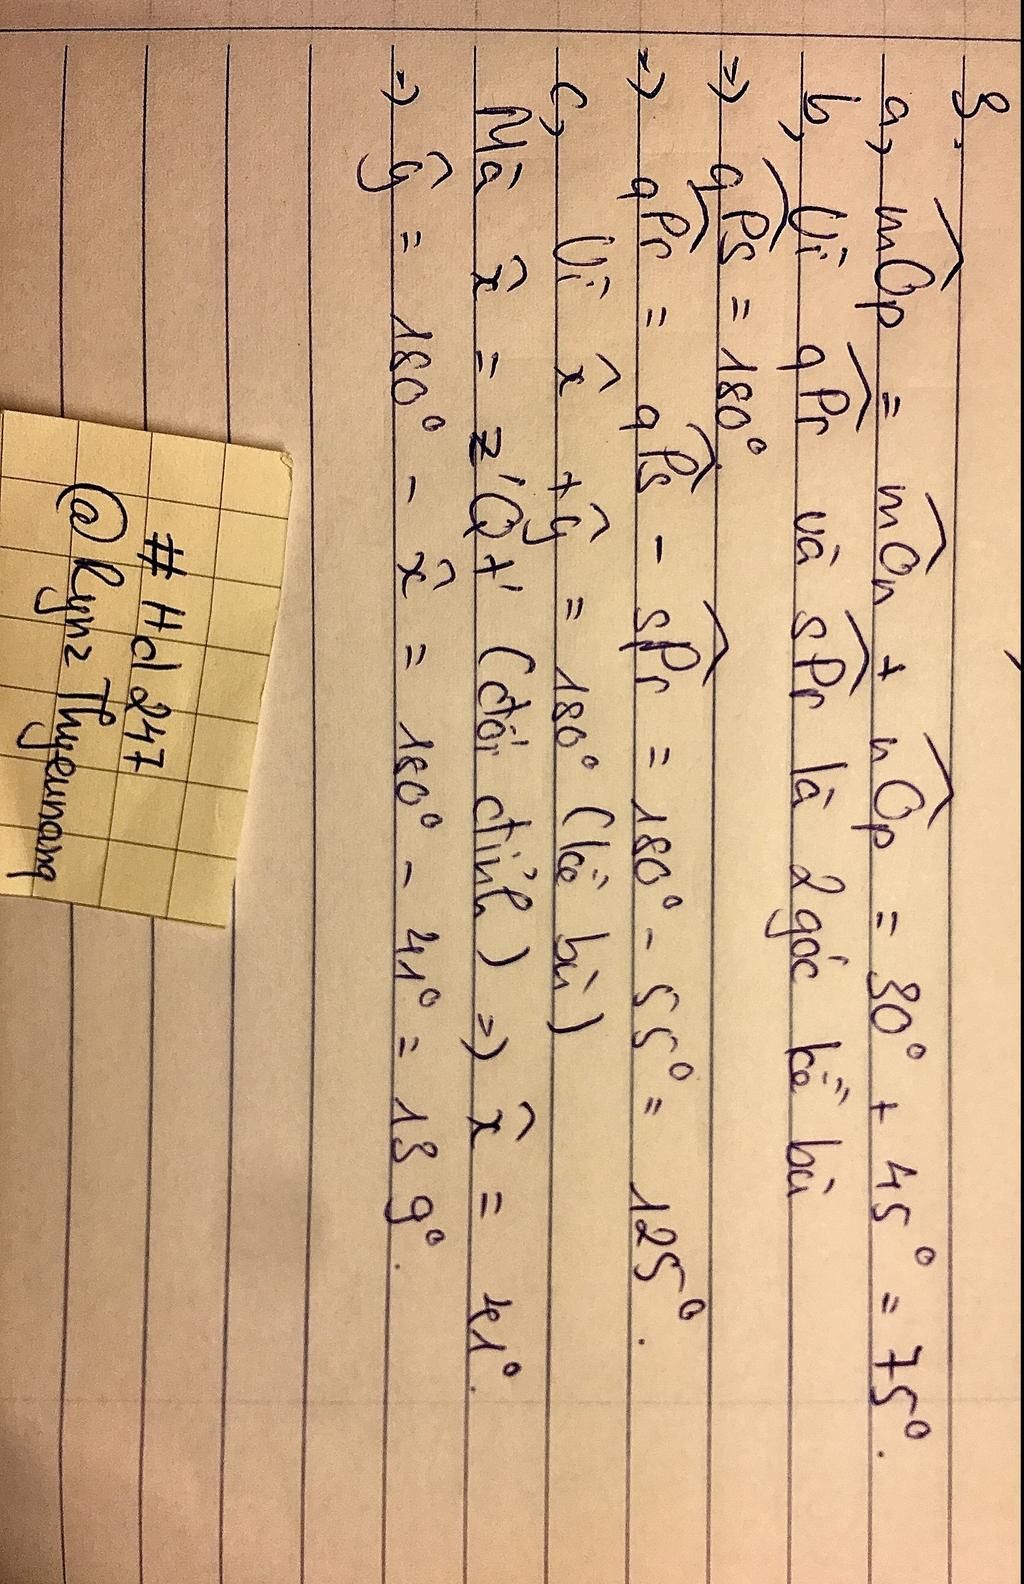 3.
a, m̂Op = m̂On + n̂Op = 30° + 45° = 75°.
b, Vì q̂Pr và ŝPr là 2 góc kề bù
=> q̂Ps = 180°
=> q̂Pr = q̂Ps - ŝPr = 180° - 55° = 125°.
c, Vì x̂ + ŷ = 180° (kề bù)
Mà x̂ = z'Qt' (đối đỉnh) => x̂ = 41°.
=> ŷ = 180° - x̂ = 180° - 41° = 139°.
# Hd 247
@ Rynz Thyeunang